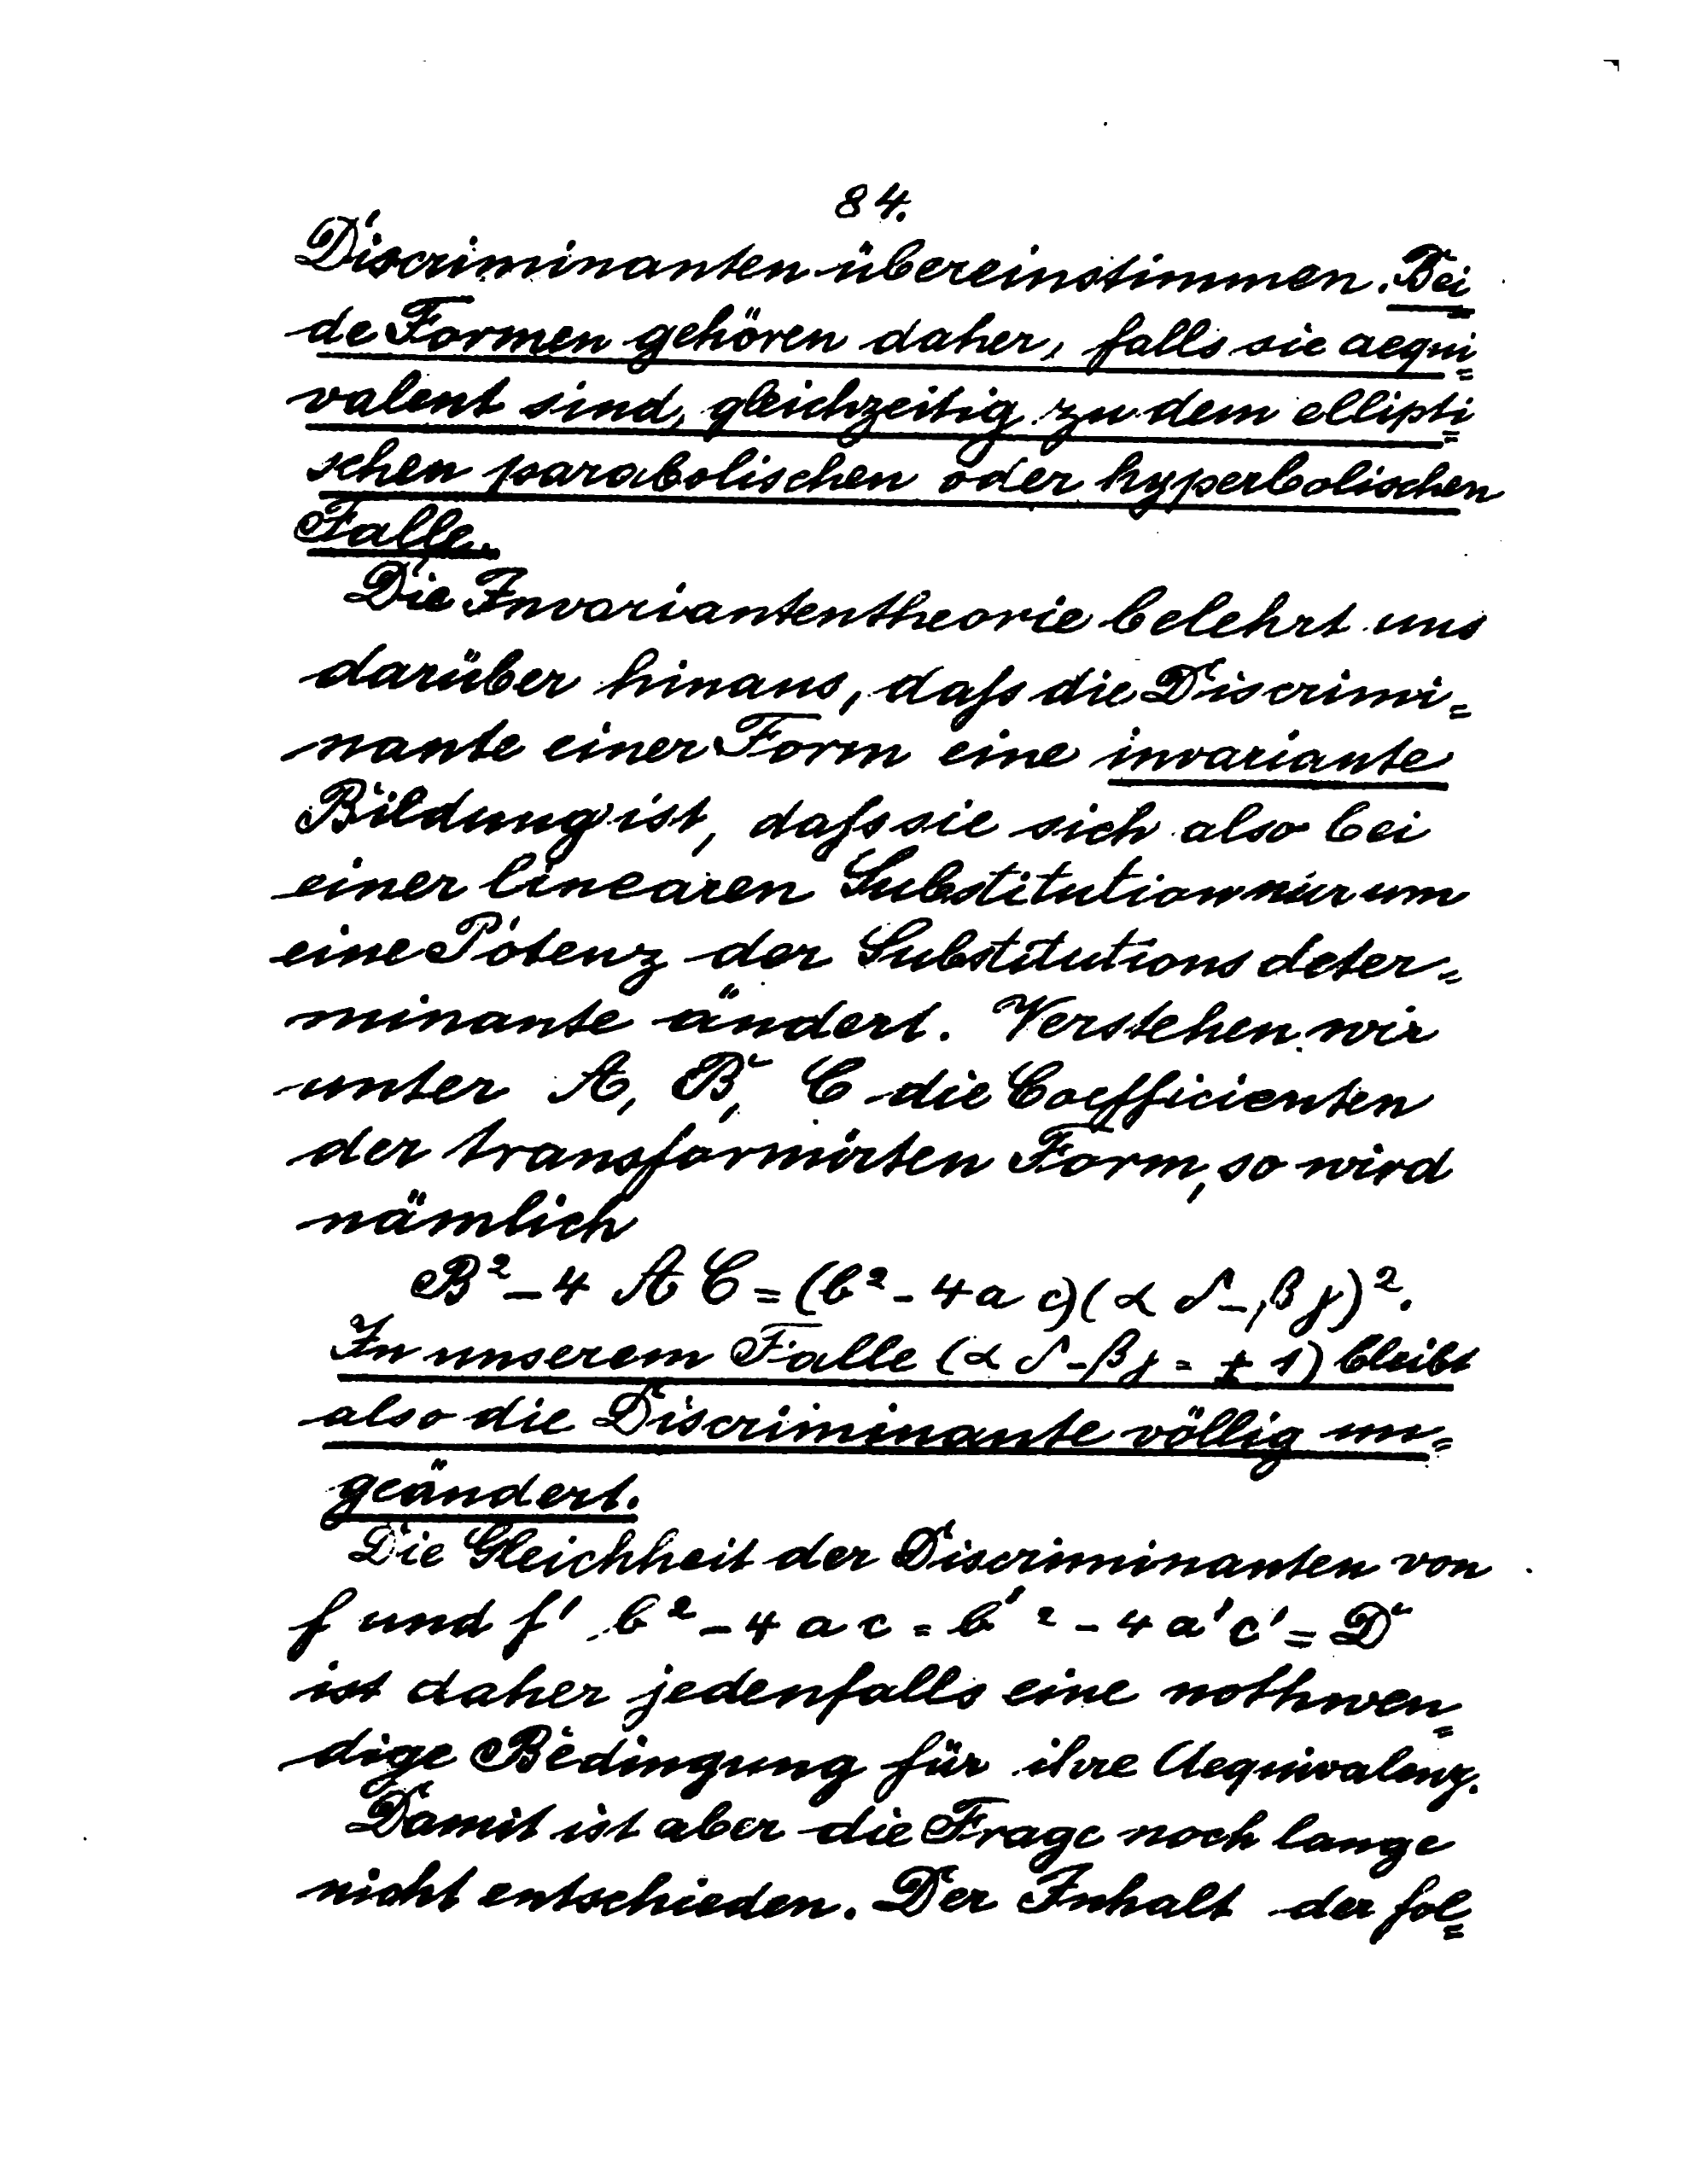 84.
Discriminanten übereinstimmen. Bei
de Formen gehören daher, falls sie aequi=
valent sind, gleichzeitig zu dem ellipti=
schen parabolischen oder hyperbolischen
Falle.
Die Invariantentheorie belehrt uns
darüber hinaus, daſs die Discrimi=
nante einer Form eine invariante
Bildung ist, daſs sie sich also bei
einer linearen Substitution nur um
eine Potenz der Substitutions deter=
minante ändert. Verstehen wir
unter A, B, C die Coefficienten
der transformirten Form, so wird
nämlich
B² - 4 A C = (b² - 4 a c)(α δ - β γ)².
In unserem Falle (α δ - β γ = ± 1) bleibt
also die Discriminante völlig un=
geändert.
Die Gleichheit der Discriminanten von
f und f' b² - 4 a c = b'² - 4 a' c' = D
ist daher jedenfalls eine nothwen=
dige Bedingung für ihre Aequivalenz.
Damit ist aber die Frage noch lange
nicht entschieden. Der Inhalt der fol=